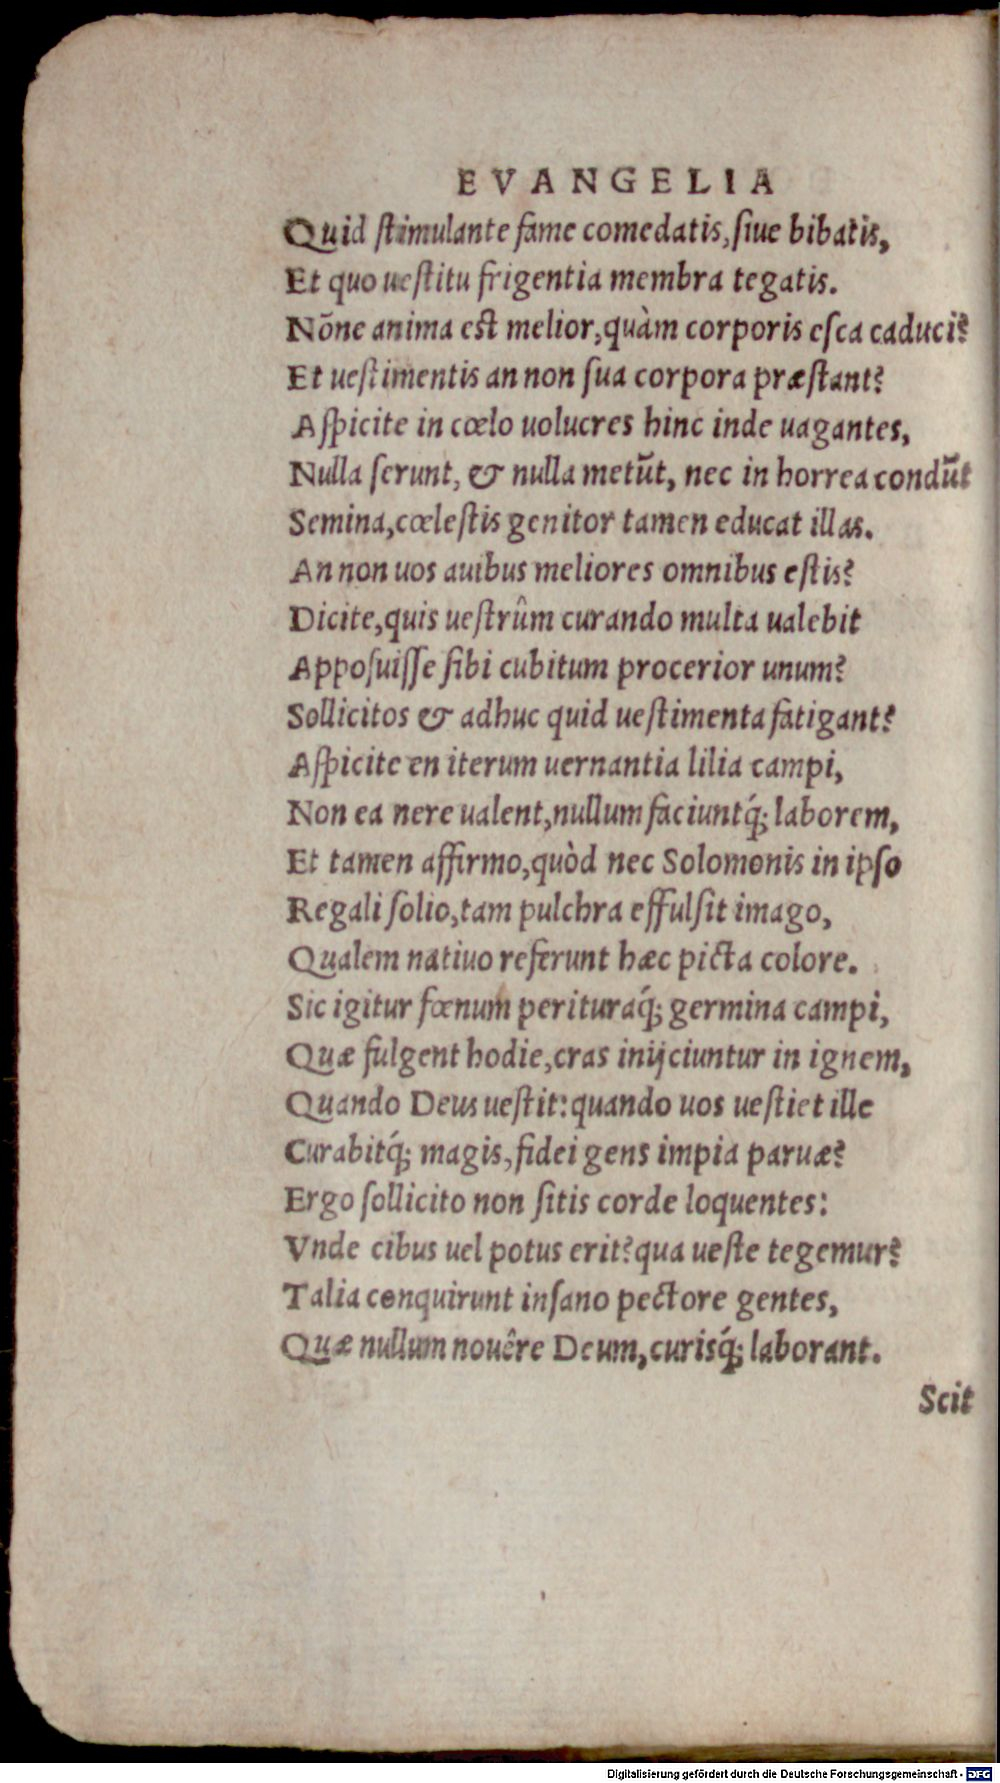 EVANGELIA
Quid ſtimulante fame comedatis, ſiue bibatis,
Et quo ueſtitu frigentia membra tegatis.
Nōne anima est melior, quàm corporis eſca caduci?
Et ueſtimentis an non ſua corpora præſtant?
Aſpicite in cœlo uolucres hinc inde uagantes,
Nulla ſerunt, & nulla metūt, nec in horrea condūt
Semina, cœleſtis genitor tamen educat illas.
An non uos auibus meliores omnibus eſtis?
Dicite, quis ueſtrûm curando multa ualebit
Appoſuiſſe ſibi cubitum procerior unum?
Sollicitos & adhuc quid ueſtimenta fatigant?
Aſpicite en iterum uernantia lilia campi,
Non ea nere ualent, nullum faciuntq́; laborem,
Et tamen affirmo, quòd nec Solomonis in ipſo
Regali ſolio, tam pulchra effulſit imago,
Qualem natiuo referunt hæc picta colore.
Sic igitur fœnum perituraq́; germina campi,
Quæ fulgent hodie, cras inijciuntur in ignem,
Quando Deus ueſtit: quando uos ueſtiet ille
Curabitq́; magis, fidei gens impia paruæ?
Ergo ſollicito non ſitis corde loquentes:
Vnde cibus uel potus erit? qua ueſte tegemur?
Talia conquirunt inſano pectore gentes,
Quæ nullum nouêre Deum, curisq́; laborant.
Scit
Digitalisierung gefördert durch die Deutsche Forschungsgemeinschaft - DFG